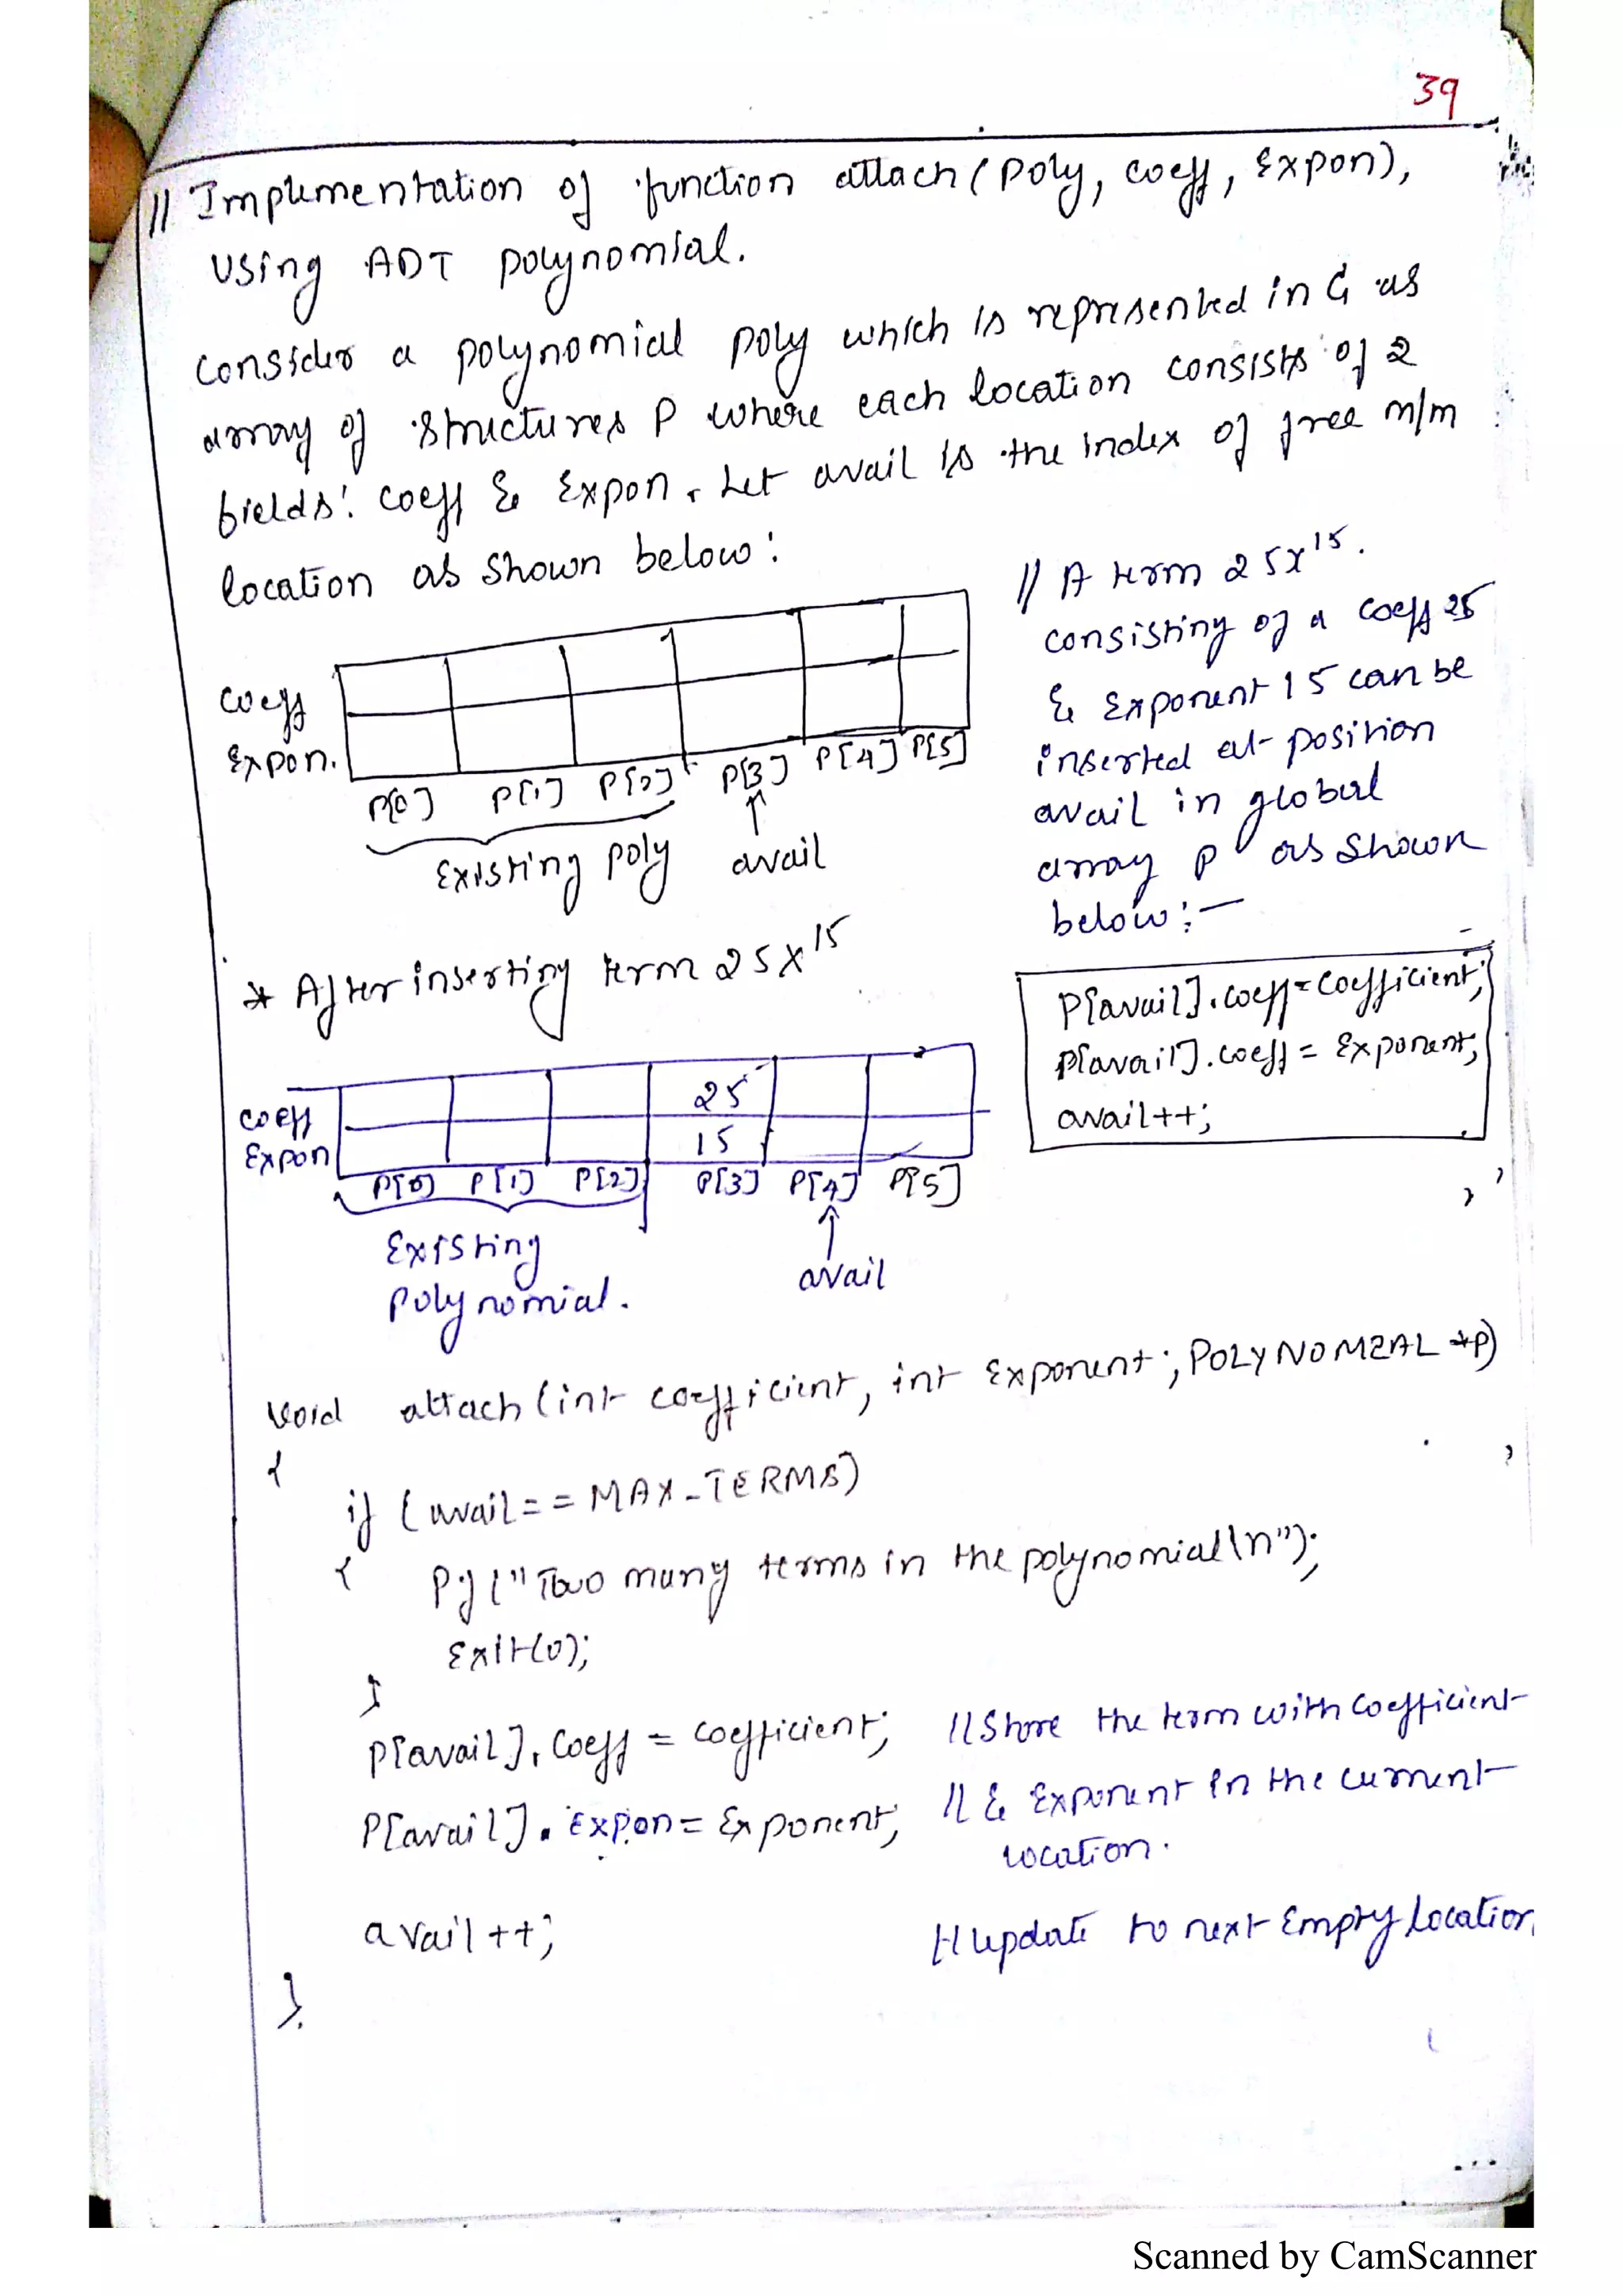 39
// Implementation of function attach (Poly, coeff, Expon),
using ADT polynomial.
Consider a polynomial poly which is represented in G as
array of structures P where each location consists of 2
fields: coeff & Expon. Let avail is the index of free m/m
location as shown below:
coeff
Expon.
P[0] P[1] P[2] P[3] P[4] P[5]
Existing poly avail
// A term 25x¹⁵.
consisting of a coeff 25
& Exponent 15 can be
inserted at position
avail in global
array P as shown
below:-
* After inserting term 25x¹⁵
P[avail].coeff=coefficient;
P[avail].coeff = Exponent;
avail++;
coeff 25
Expon 15
P[0] P[1] P[2] P[3] P[4] P[5]
Existing
Polynomial.
avail
void attach (int coefficient, int Exponent; POLYNOMIAL *P)
{
if (avail == MAX_TERMS)
{ Pf ("Two many terms in the polynomial\n");
Exit(0);
}
P[avail].Coeff = coefficient; //Store the term with coefficient
P[avail].Expon= Exponent; // & Exponent in the current
location.
avail ++; //update to next Empty location
}.
Scanned by CamScanner